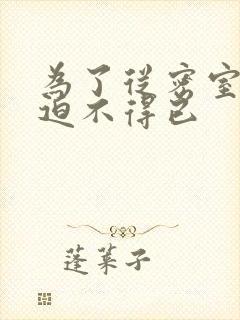 為了從密室
迫不得已
蓬萊子